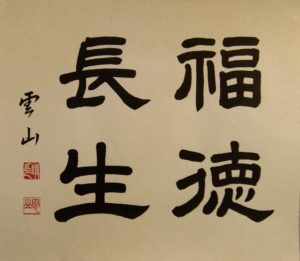 福徳
長生
雲山